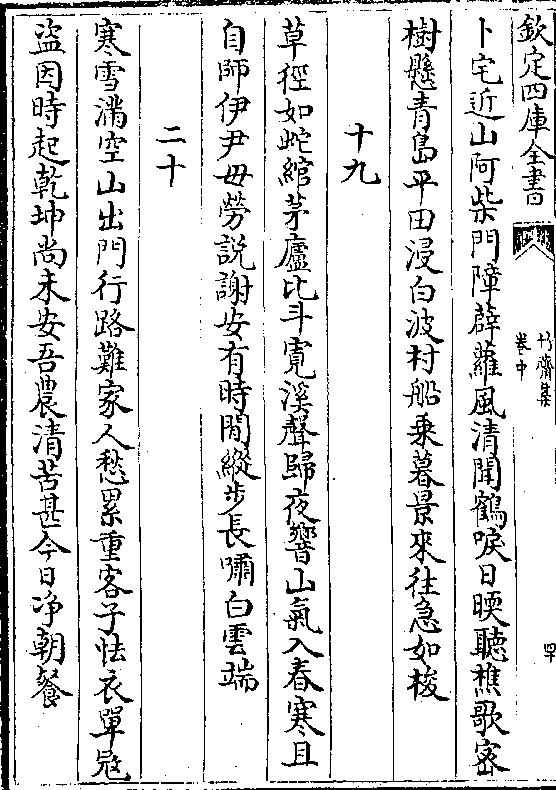 欽定四庫全書
竹齋集
卷中
卜宅近山阿柴門障薜蘿風清聞鶴唳日暝聽樵歌密
樹懸青島平田浸白波村船乗暮景來往急如梭
十九
草徑如蛇綰茅廬比斗寛溪聲歸夜響山氣入春寒且
自師伊尹毋勞説謝安有時閒縱步長嘯白雲端
二十
寒雪滿空山出門行路難家人愁累重客子怯衣單冦
盜因時起乾坤尚未安吾農清苦甚今日净朝餐